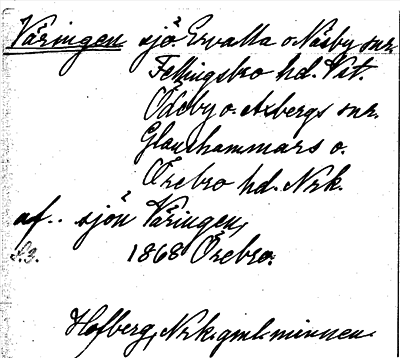 Väringen sjö. Ervalla o. Näsby snr.
Fellingsbro hd. Vst.
Ödeby o. Axbergs snr.
Glanshammars o.
Örebro hd. Nrk.
af.. sjön Väringen,
1868 Örebro.
Hofberg, Nrk. gml. minnen.